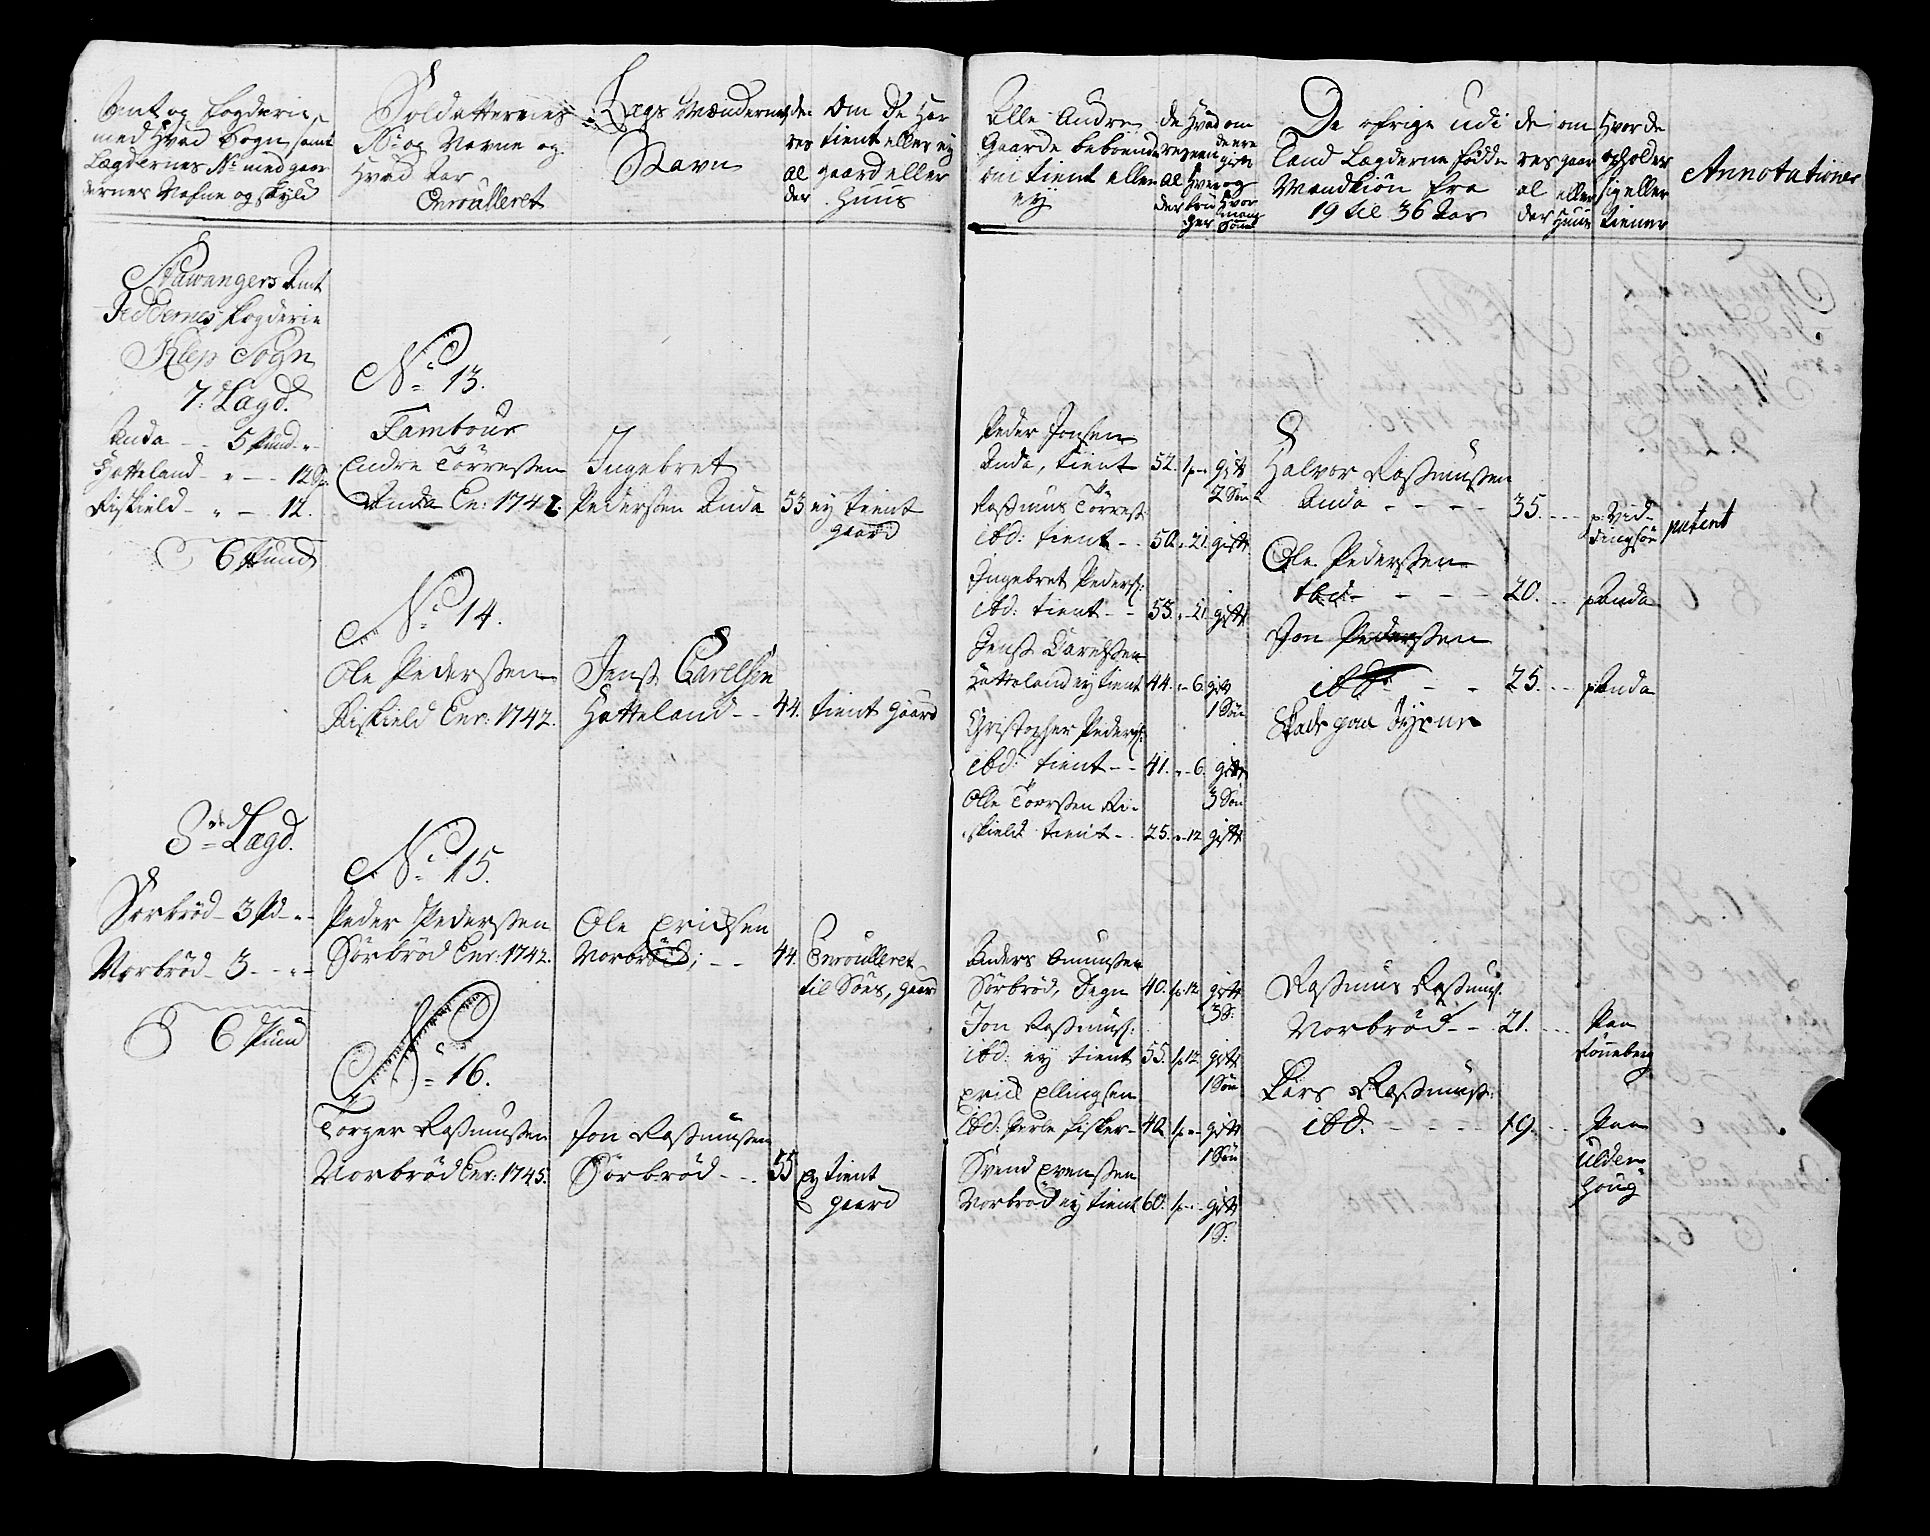 Amt og Fogderie
med Hvad Sogn samt
Lægdernes No med gaar
dernes Nafne og Skyld
Soldatternes
No og Navne og
Hvad Aar
Enroulleret
Lægs Mændernes
Navn
de
res
al
der
Om De Har
tient eller ey
gaard eller
Huus
Alle Andre
Gaarde beboende
om tient eller
ey
de
res
al
der
De øfrige udi
Land Lægderne fødde
Mandkiøn fra
19 til 36 Aar
de
res
al
der
om
gaar
eller
Huus
Hvor de
opholder
sig eller
tiener
Annotationer
Stawangers Amt
Jedderens Fogderie
Klep Sogn
7: Lægd.
Anda - - 5 Pund -
Hatteland - " - 12
Riskield - " - 12.
6 Pund
No 13.
Tambour
Endre Tørressen
Anda En: 1742.
Ingebret
Pederssen Anda 53 ey tient
gaard
No 14.
Ole Pederssen
Riskield Enr: 1742.
Jens Carelsen
Hatteland - - 44. tient gaard
8de Lægd.
Sørbrød - 3 Pd - " -
Norbrød - 3 - - " -
6 Pund
No 15.
Peder Pederssen
Sørbrød Enr: 1742.
Ole Ericksen
Norbrød; - - 44. Enroulleret
til Søes, gaard
No 16.
Torger Rasmussen
Norbrød Enr: 1745.
Jon Rasmussen
Sørbrød - - 55 ey tient
gaard
Peder Jonsen
Anda, tient 52. 1p - gift
2 Søn
Rasmus Tørress:
ibd: tient - - 50. - 21. gift
Ingebret Peders:
ibd: tient - - 53. - 21. gift
Jens Carelssen
Hatteland ey tient 44. - 6. gift
1 Søn
Christopher Peders:
ibd: tient - - 41. - 6. gift
3 Søn
Olle Toerssen Ri-
skield tient - 25. - 12 gift
Anders Omunssen
Sørbrød, Degn 40. 1p 12. gift
3 S:
Jon Rasmus:
ibd: ey tient 55. 1p 12. gift
1 Søn
Erick Ellingsen
ibd: Perle fisker - 40. 1p - gift
1 Søn
Svend Evenssen
Norbrød ey tient 60. 1p - - gift
1 S:
Halvor Rasmussen
Anda - - - - 35. - - - p: Vid-
tingsøe patent
Ole Pederssen
ibd - - - - 20. - - p Anda
Jon Pederssen
ibd: - - - 25. - - - p Anda
Rasmus Rasmus:
Norbrød - - 21. - - - Paa
Rønneberg
Lars Rasmus:
ibd. - - - - 19. - - - Paa
Ulden-
houg